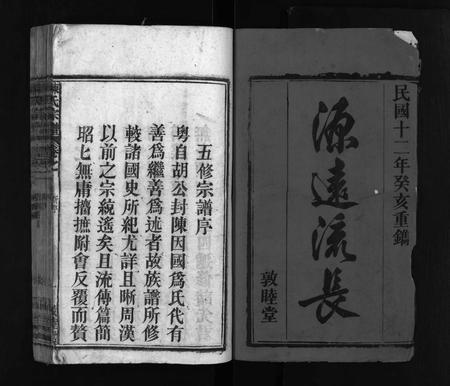 民國十二年癸亥重鐫
源遠流長
敦睦堂
五修宗譜序
粵自胡公封陳因國為氏代有
善為繼善為述者故族譜所修
較諸國史所紀尤詳且晰周漢
以前之宗統遙矣且流傳篇簡
昭七無庸摭摭附會反覆而贅